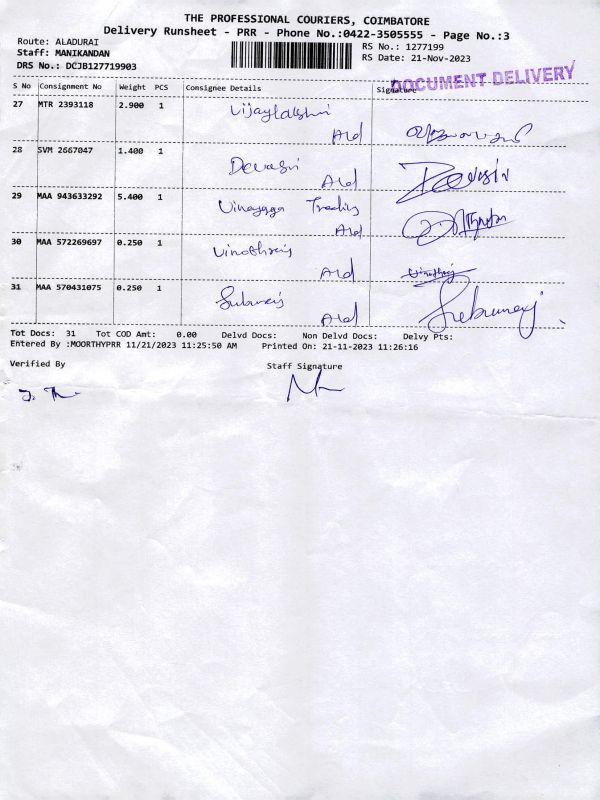 THE PROFESSIONAL COURIERS, COIMBATORE
Delivery Runsheet - PRR - Phone No.:0422-3505555 - Page No.:3
Route: ALADURAI
Staff: MANIKANDAN
DRS No.: DCJB127719903
RS No.: 1277199
RS Date: 21-Nov-2023
DOCUMENT DELIVERY
S No Consignment No Weight PCS Consignee Details Signature
27 MTR 2393118 2.900 1 Vijaylakshmi
Ald
28 SVM 2667047 1.400 1 Devasri
Ald
29 MAA 943633292 5.400 1 Vinayaga Trading
Ald
30 MAA 572269697 0.250 1 Vinothraj
Ald Vinothraj
31 MAA 570431075 0.250 1 Subumaraj
Ald
Tot Docs: 31 Tot COD Amt: 0.00 Delvd Docs: Non Delvd Docs: Delvy Pts:
Entered By :MOORTHYPRR 11/21/2023 11:25:50 AM Printed On: 21-11-2023 11:26:16
Verified By Staff Signature